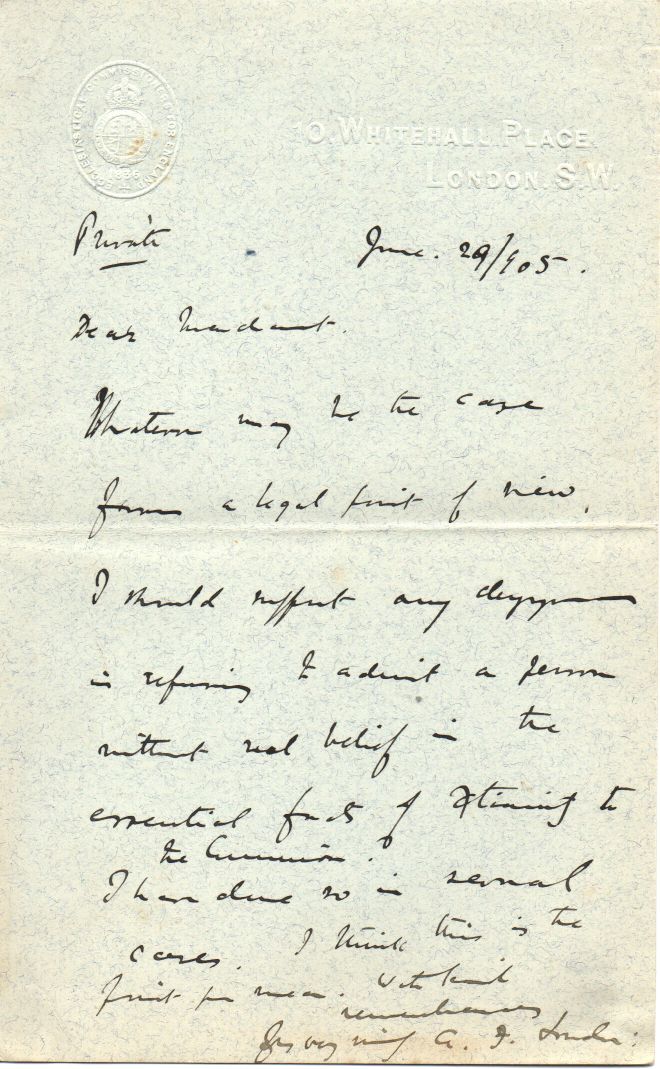 ECCLESIASTICAL COMMISSIONERS FOR ENGLAND
1836
10. WHITEHALL PLACE.
LONDON. S.W.
Private
June. 29/905.
Dear
Whatever may be the case
from a legal point of view,
I should support any clergyman
in refusing to admit a person
without real belief in the
essential facts of Xtianity to
the Communion.
I have done so in several
cases. I think this is the
point you mean. With kind
remembrances
A. F. London: